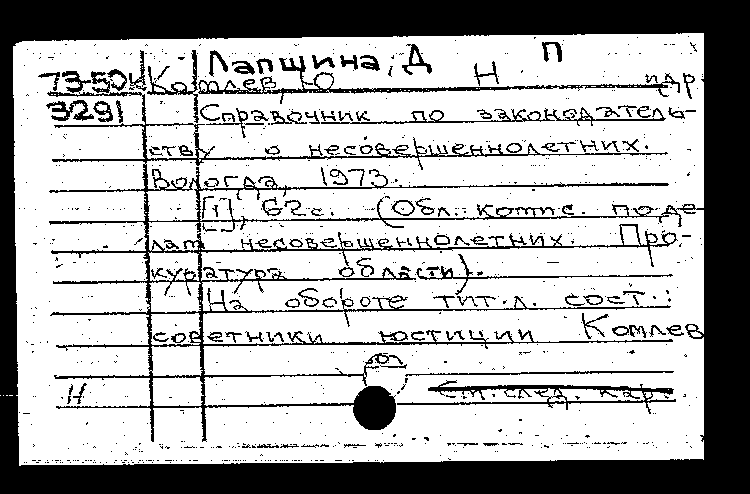 Лапшина, Д П
73-504 Комлев, Ю Н идр.
3291 Справочник по законодатель-
ству о несовершеннолетних.
Вологда, 1973.
[1], 62 с. (Обл. комис. по де-
лам несовершеннолетних. Про-
куратура области).
На обороте тит. л. сост.:
советники юстиции Комлев
Н См. след. карт.